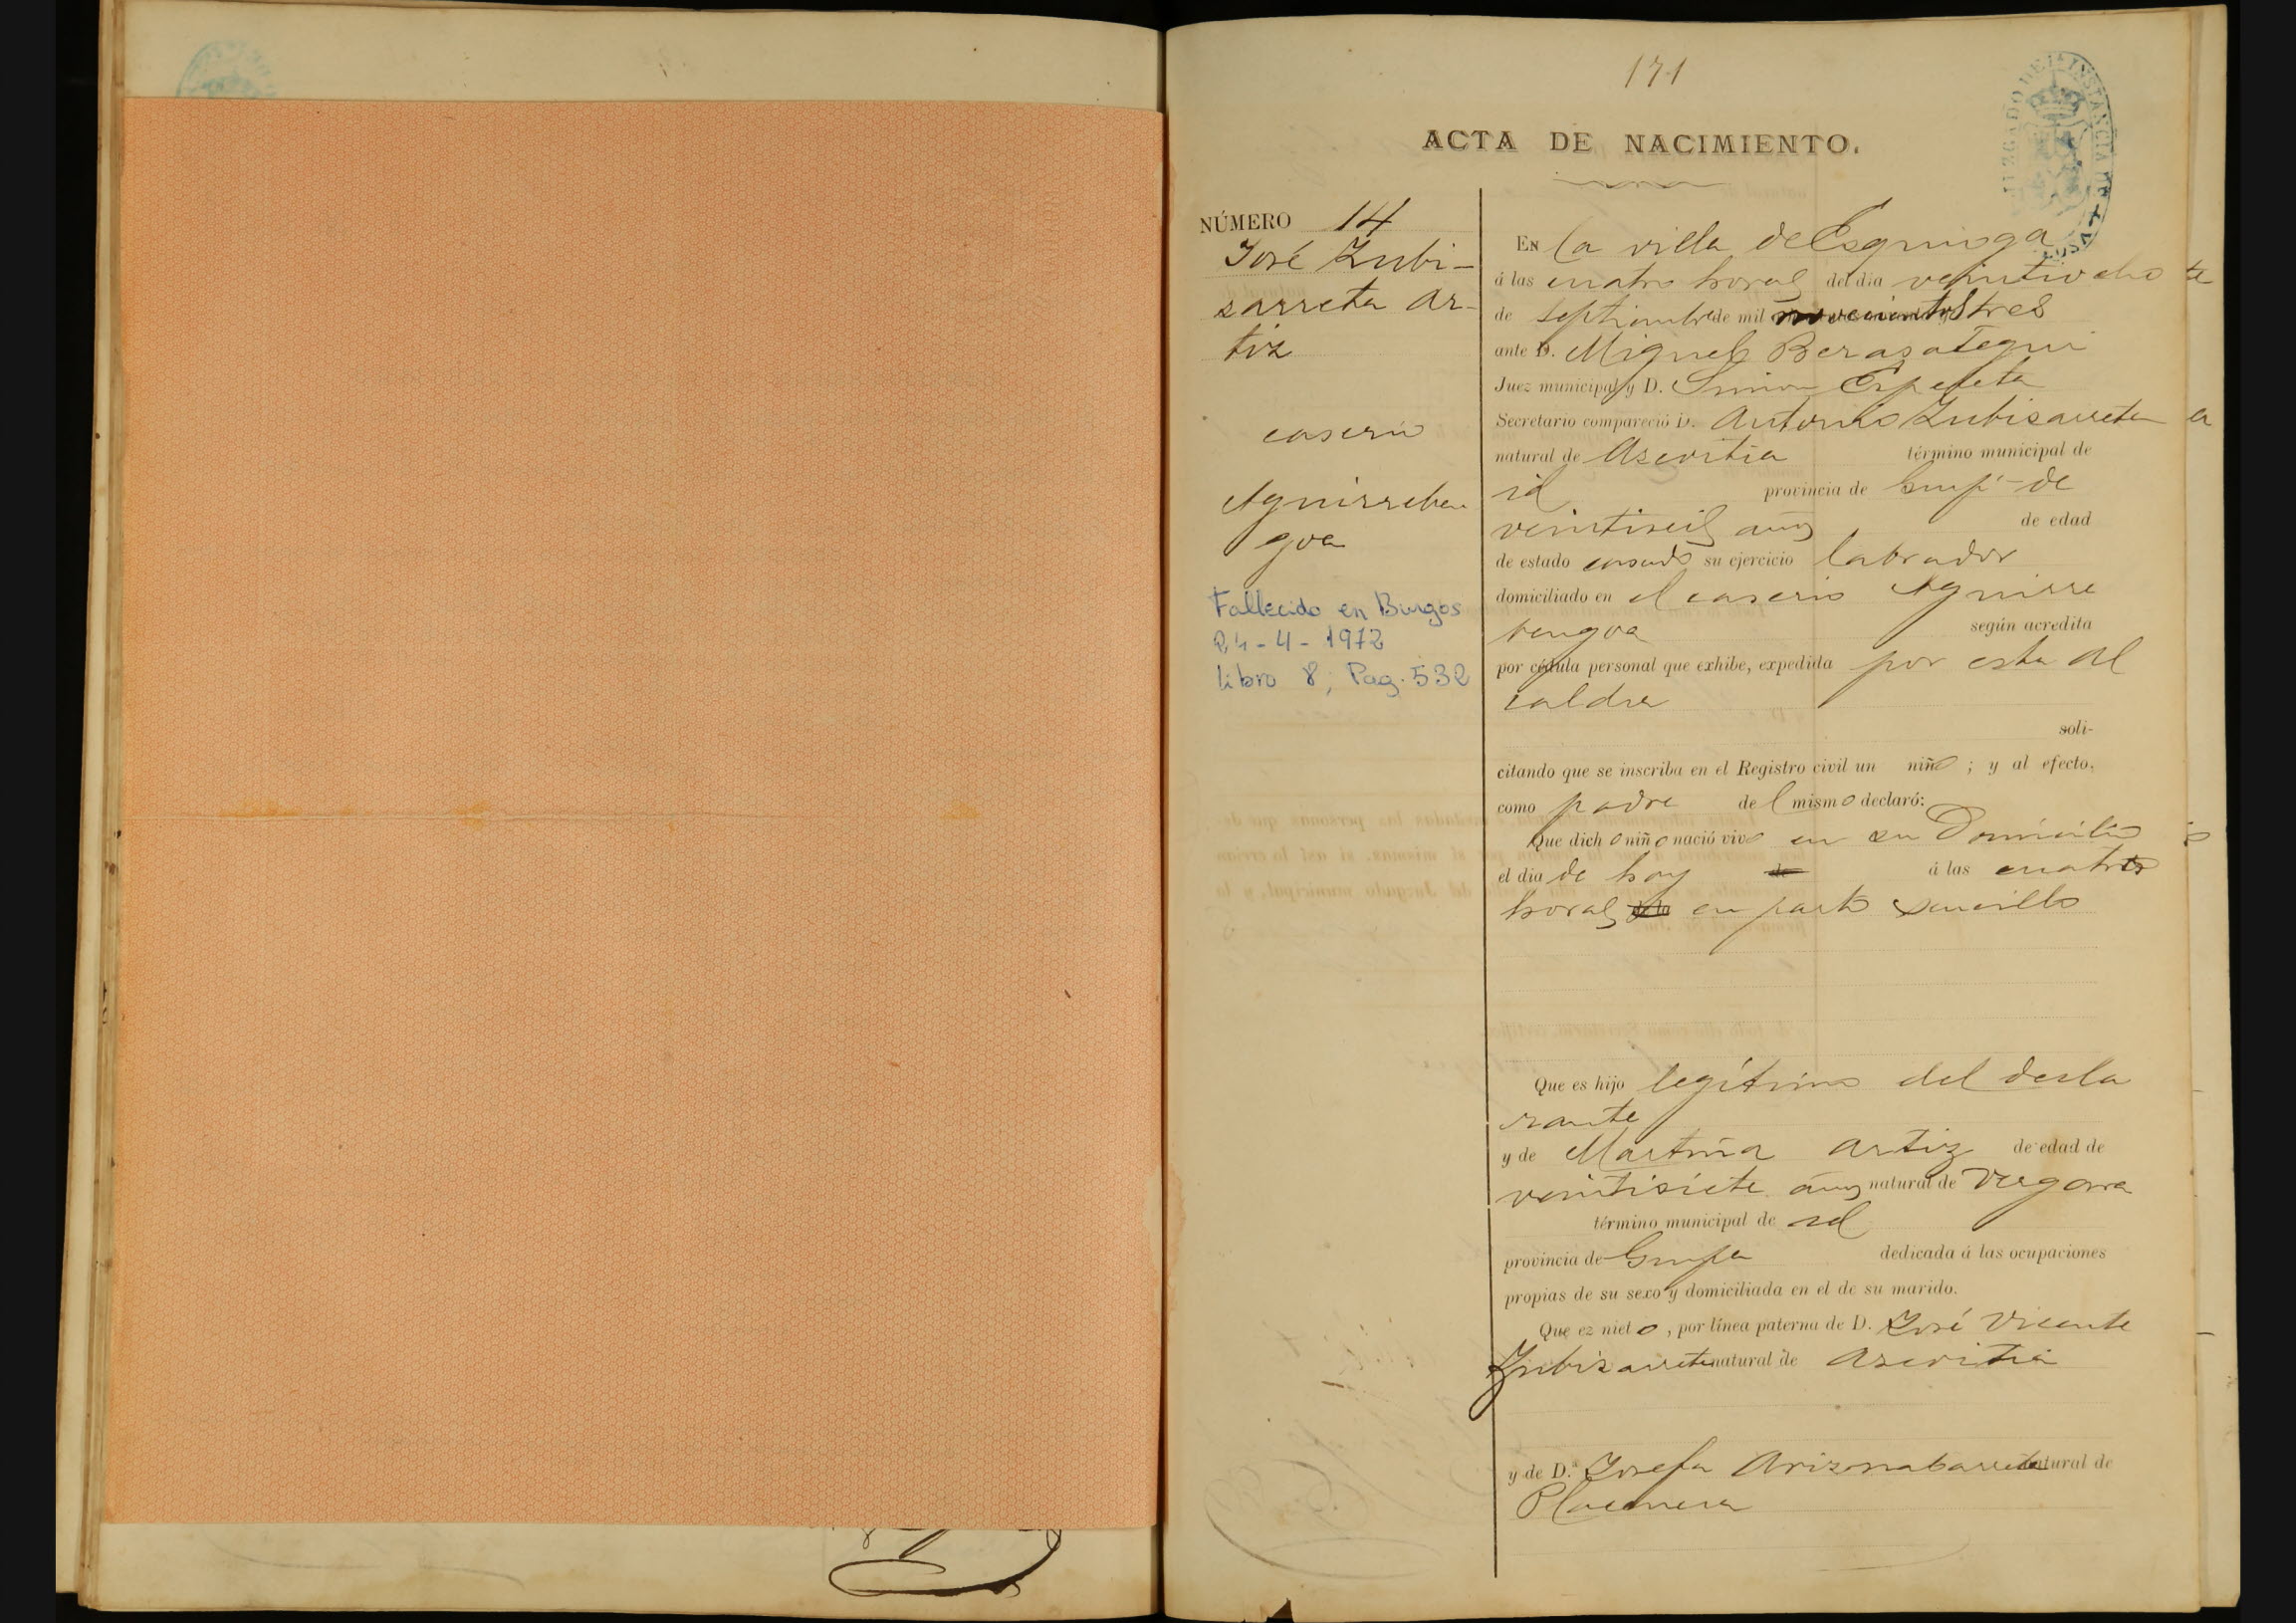 171
JUZGADO DE 1ª INSTANCIA DE
ACTA DE NACIMIENTO.
NÚMERO 14
José Zubi-
sarreta Ar-
tiz
caserio
Aguirreben
goa
Fallecido en Burgos
24-4-1972
Libro 8, Pag. 532
En la villa de Esquioga
á las cuatro horas del dia veintiocho
de Septiembre de mil novecientos tres
ante D. Miguel Berasategui
Juez municipal y D. Simon Ezpeleta
Secretario compareció D. Antonio Zubisarreta
natural de Ascoitia término municipal de
id provincia de Guip.ª de
veintiseis años de edad
de estado casado su ejercicio labrador
domiciliado en el caserio Aguirre
bengoa según acredita
por cédula personal que exhibe, expedida por esta Al
caldia
soli-
citando que se inscriba en el Registro civil un niño; y al efecto,
como padre del mismo declaró:
Que dicho niño nació vivo en su Domicilio
el dia de hoy de á las cuatro
horas de la en parto sencillo
Que es hijo legítimo del decla
rante
y de Martina Artiz de edad de
veintisiete años natural de Vergara
término municipal de id
provincia de Guipa dedicada á las ocupaciones
propias de su sexo y domiciliada en el de su marido.
Que ez nieto, por línea paterna de D. José Vicente
Zubizarreta natural de Ascoitia
y de D.ª Josefa Arizonabarreta natural de
Placencia